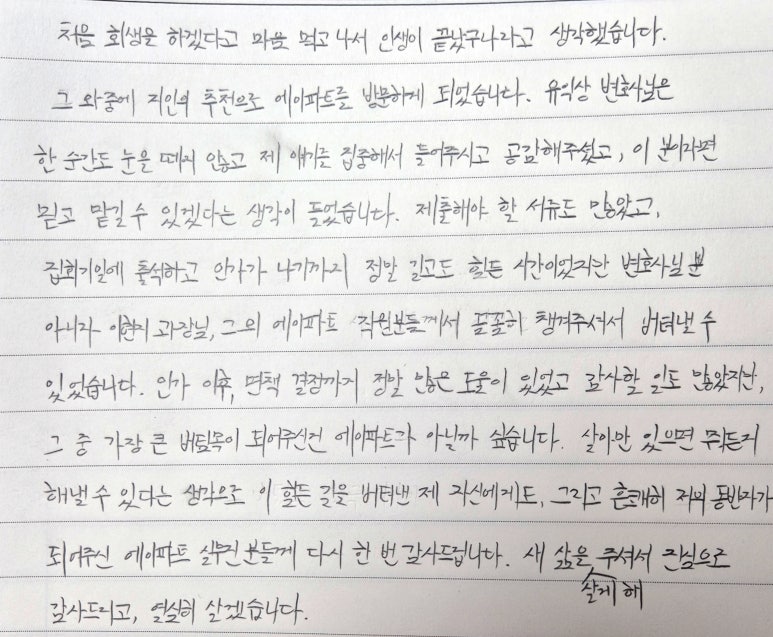 처음 회생을 하겠다고 마음 먹고 나서 인생이 끝났구나라고 생각했습니다.
그 와중에 지인의 추천으로 에이파트를 방문하게 되었습니다. 유익상 변호사님은
한 순간도 눈을 떼지 않고 제 얘기를 집중해서 들어주시고 공감해주셨고, 이 분이라면
믿고 맡길 수 있겠다는 생각이 들었습니다. 제출해야 할 서류도 많았고,
집회기일에 출석하고 인가가 나기까지 정말 길고도 힘든 시간이었지만 변호사님 뿐
아니라 이현지 과장님, 그 외 에이파트 직원분들께서 꼼꼼히 챙겨주셔서 버텨낼 수
있었습니다. 인가 이후, 면책 결정까지 정말 많은 도움이 있었고 감사할 일도 많았지만,
그 중 가장 큰 버팀목이 되어주신건 에이파트가 아닐까 싶습니다. 살아만 있으면 뭐든지
해낼 수 있다는 생각으로 이 힘든 길을 버텨낸 제 자신에게도, 그리고 흔쾌히 저의 동반자가
되어주신 에이파트 실무진 분들께 다시 한 번 감사드립니다. 새 삶을 주셔서 진심으로
살게 해
감사드리고, 열심히 살겠습니다.